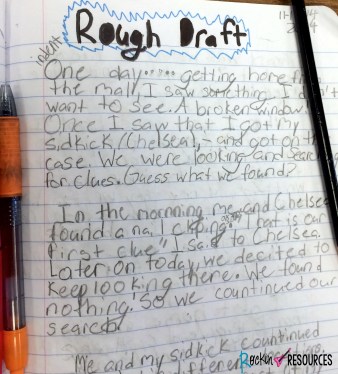 11-
Rough Draft
indent
One day..... getting home
the mall, I saw something I
want to see. A broken window
Once I saw that I got my
sidkick (Chelsea), and got on th
case. We were looking and
for clues. Guess what we found?
In the mornning me and Chelsea
found a nail cliping. "That is our
first clue" I said to Chelsea.
Later on today, we decited to
Keep looking there. We found
nothing. So we countinued our
Me and my sidkick countinued
in different
Rockin RESOURCES